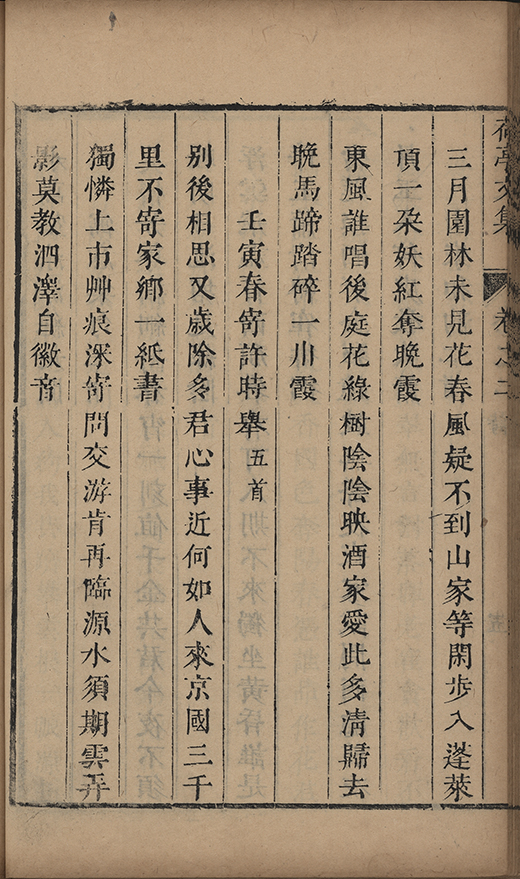 荷亭文集 卷之二
三月園林未見花春風疑不到山家等閑步入蓬萊
頂一朶妖紅奪晚霞
東風誰唱後庭花綠樹陰陰映酒家愛此多淸歸去
晚馬蹄踏碎一川霞
壬寅春寄許時舉五首
別後相思又歲除多君心事近何如人來京國三千
里不寄家鄉一紙書
獨憐上市艸痕深寄問交游肯再臨源水須期雲弄
影莫教泗澤自徽音